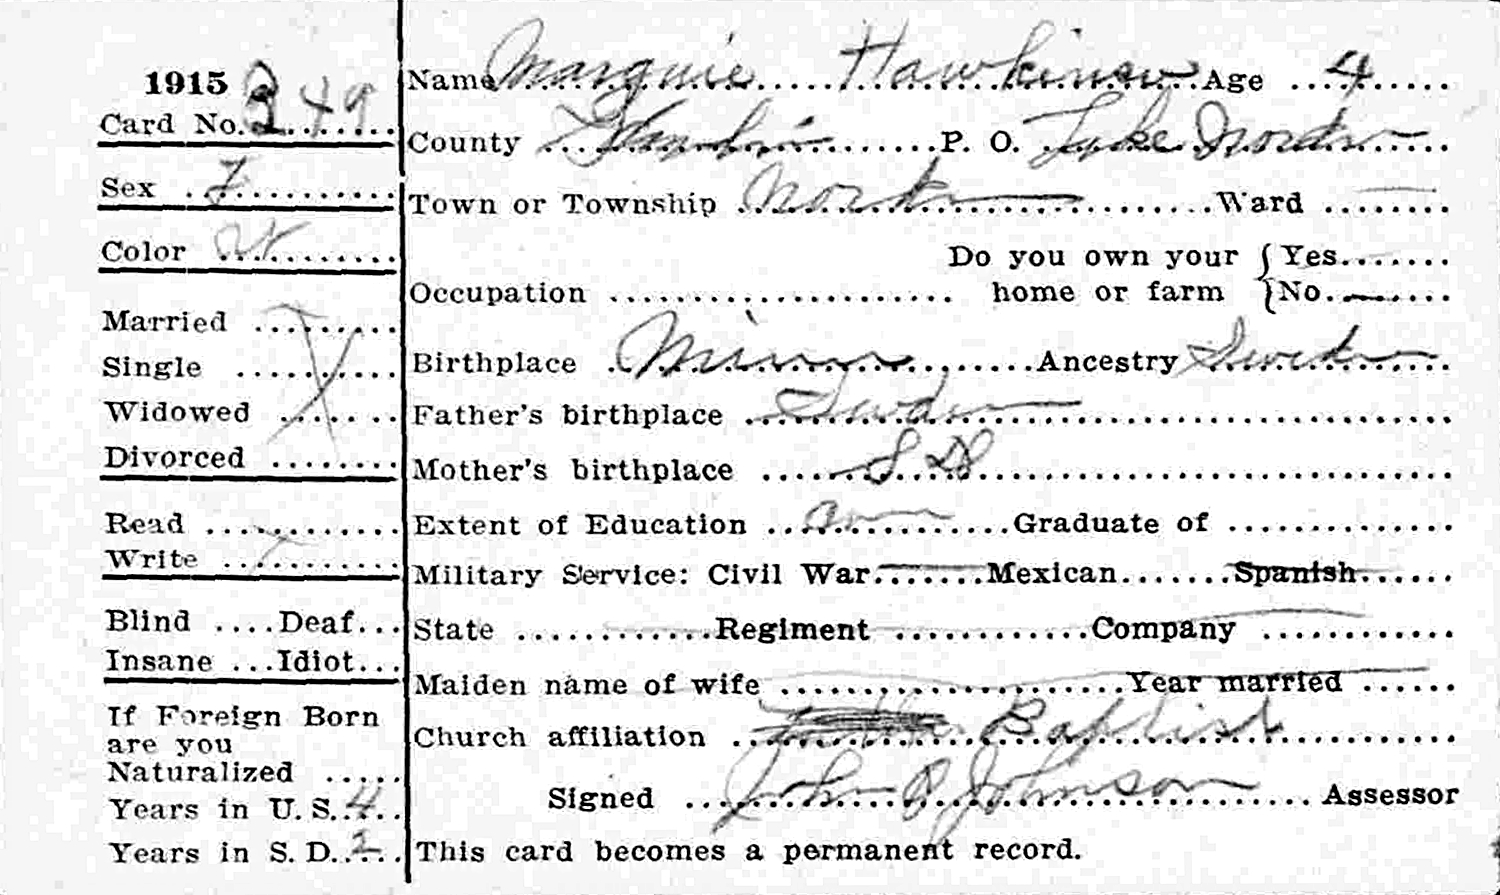 1915
Card No. 349
Sex F
Color W
Married
Single
Widowed
Divorced
Read
Write
Blind .... Deaf...
Insane ... Idiot...
If Foreign Born
are you
Naturalized .....
Years in U. S. 4
Years in S. D. 2
Name Margurie Hawkinson Age 4
County P. O. Lake Norden
Town or Township Norden Ward
Do you own your { Yes
Occupation home or farm { No. —
Birthplace Minn Ancestry Sweden
Father's birthplace Sweden
Mother's birthplace S D
Extent of Education Graduate of
Military Service: Civil War Mexican Spanish
State Regiment Company
Maiden name of wife Year married
Church affiliation Baptist
Signed John P Johnson Assessor
This card becomes a permanent record.